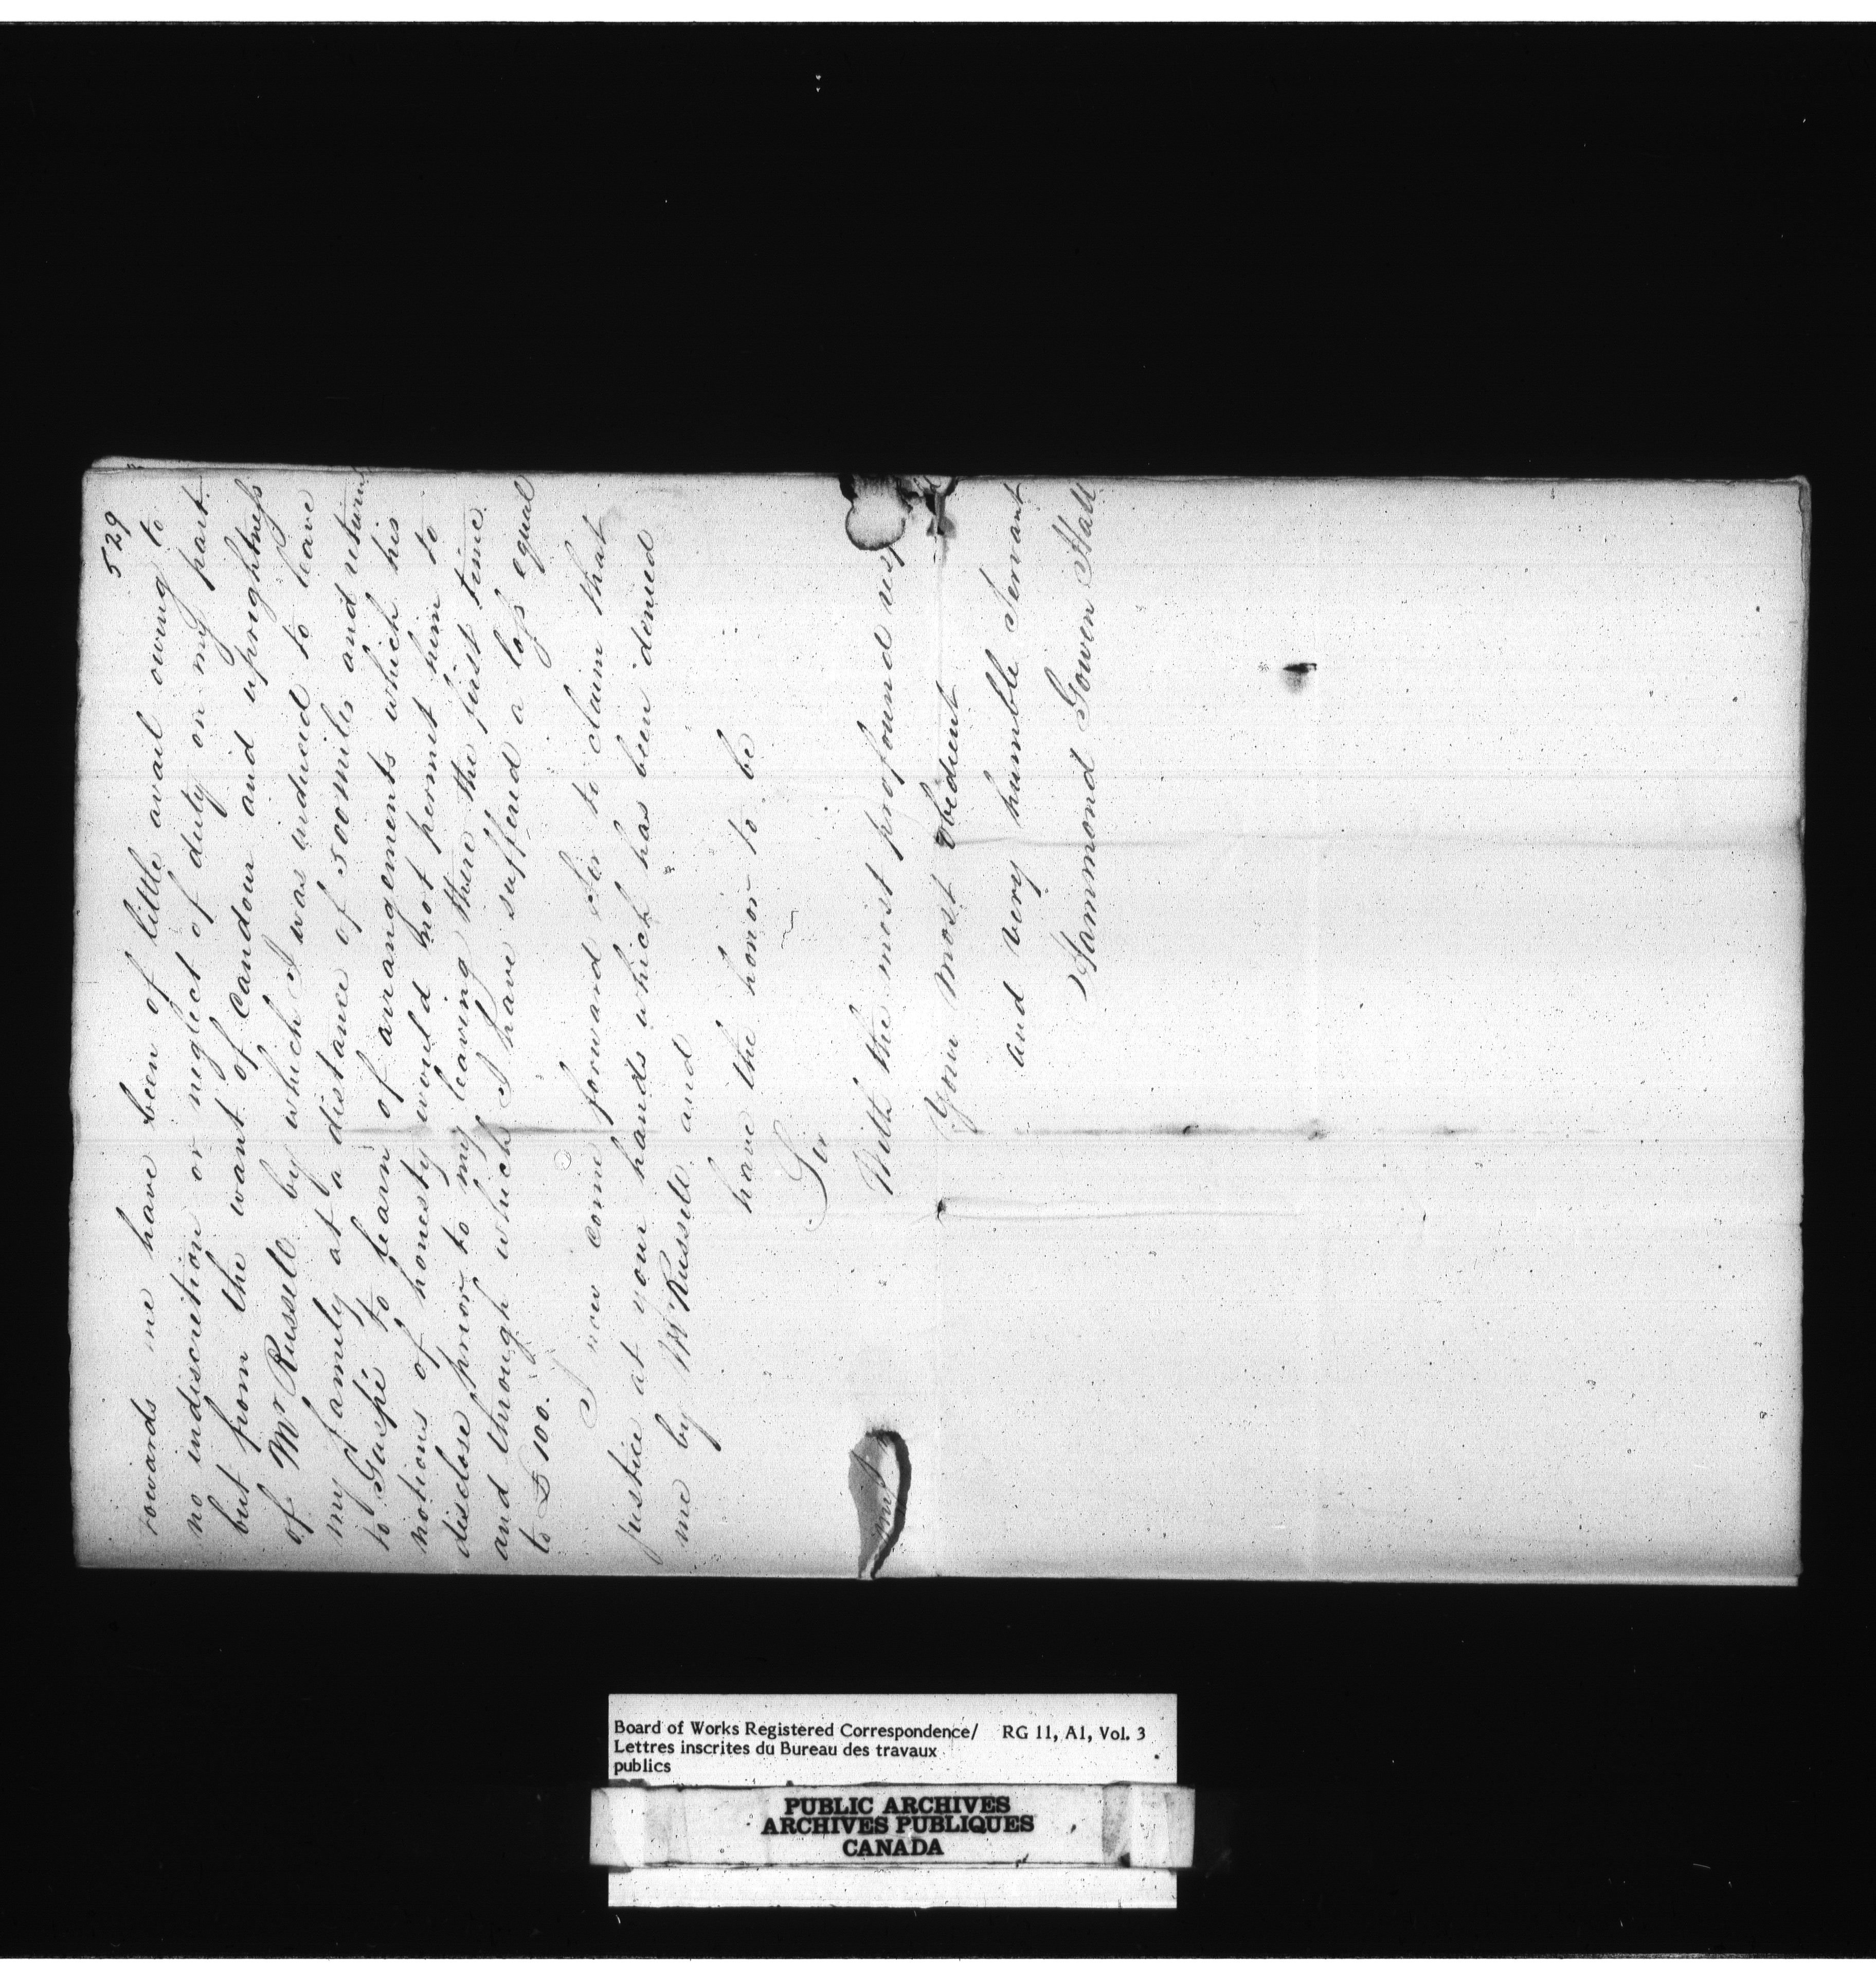 529
towards me have been of little avail owing to
no indiscretion or neglect of duty on my part
but from the want of candour and uprightness
of Mr Russell by which I was induced to leave
my family at a distance of 500 miles and return
to Gaspé to learn of arrangements which his
notions of honesty would not permit him to
disclose prior to my leaving there the first time
and through which I have suffered a loss equal
to £100.
I now come forward Sir to claim that
justice at your hands which has been denied
me by Mr Russell and
have the honor to be
Sir
With the most profound
Your most obedient
and very humble Servant
Hammond Gowen Hall
Board of Works Registered Correspondence/ RG 11, A1, Vol. 3
Lettres inscrites du Bureau des travaux
publics
PUBLIC ARCHIVES
ARCHIVES PUBLIQUES
CANADA